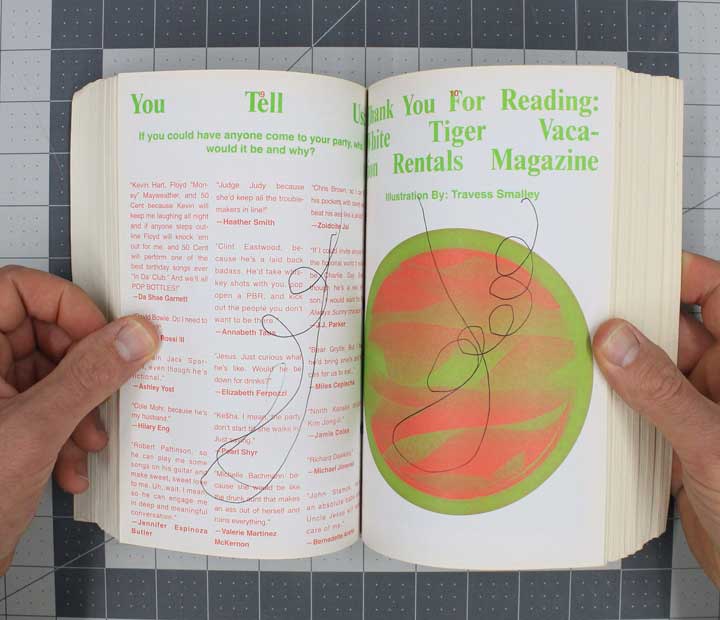 9
You Tell Us:
If you could have anyone come to your party, who
would it be and why?
"Kevin Hart, Floyd "Mon-
ey" Mayweather, and 50
Cent because Kevin will
keep me laughing all night
and if anyone steps out-
line Floyd will knock 'em
out for me, and 50 Cent
will perform one of the
best birthday songs ever
"In Da' Club." And we'll all
POP BOTTLES!"
—Da Shae Garnett
David Bowie. Do I need to
Rossi III
Jack Spar-
even though he's
fictional."
—Ashley Yost
"Cole Mohr, because he's
my husband."
—Hilary Eng
"Robert Pattinson, so
he can play me some
songs on his guitar and
make sweet, sweet love
to me. Uh, wait. I mean
so he can engage me
in deep and meaningful
conversation."
—Jennifer Espinoza
Butler
"Judge Judy because
she'd keep all the trouble-
makers in line!"
—Heather Smith
"Clint Eastwood, be-
cause he's a laid back
badass. He'd take whis-
key shots with you, pop
open a PBR, and kick
out the people you don't
want to be there."
—Annabeth
"Jesus. Just curious what
he's like. Would he be
down for drinks?"
—Elizabeth Ferpozzi
"Ke$ha. I mean, the party
don't start till she walks in.
Just saying."
—Pearl Shyr
"Michelle Bachmann be-
cause she would be like
the drunk aunt that makes
an ass out of herself and
ruins everything."
—Valerie Martinez
McKernon
"Chris Brown, so I can
his pockets with
beat his ass like a
—Zoidcita
"If I could invite
the fictional
be Charlie
though he's a
son. I would want
Always Sunny
—J.J. Parker
"Bear Grylls. But
he'd bring
ces for us to eat."
—Miles
"North Korea's
Kim Jong-il."
—Jamie
"Richard
—Michael
"John Stamos
an absolute
Uncle Jesse
care of me."
—Bernadette
10
Thank You For Reading:
White Tiger Vaca-
on Rentals Magazine
Illustration By: Travess Smalley